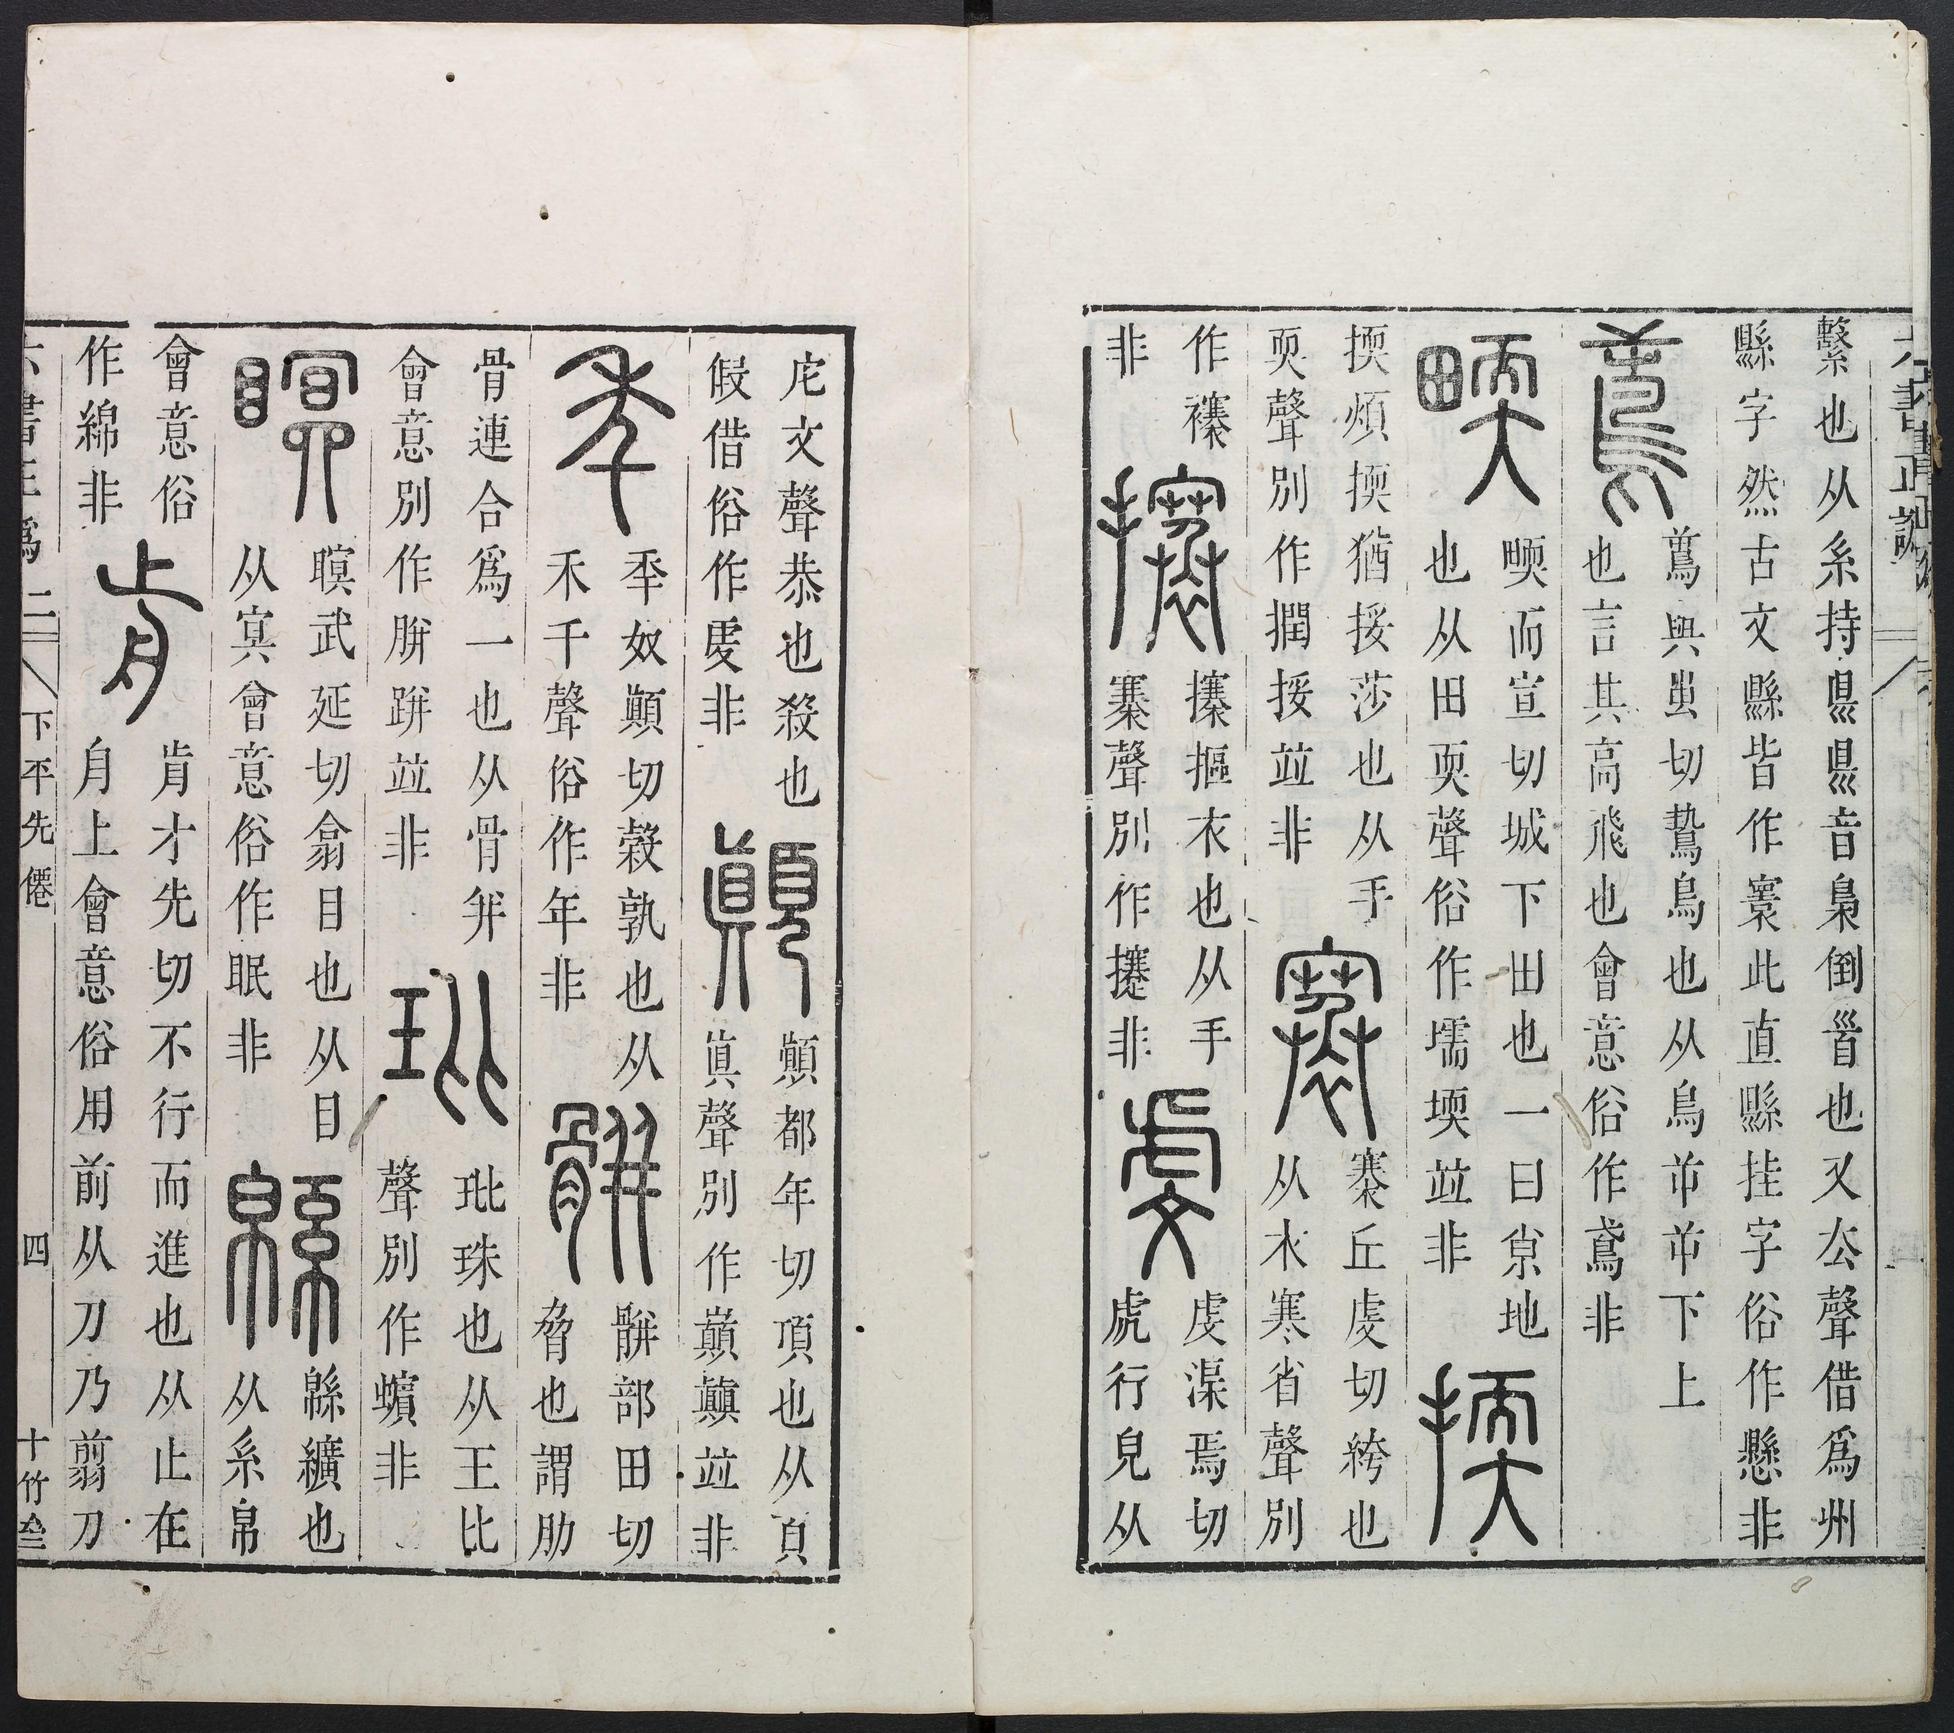 繫也从系持𥄉𥄉音梟倒𩠐也又厶聲借爲州
縣字然古文縣皆作寰此直縣挂字俗作懸非
蔦與蚩切鷙鳥也从鳥𠦒𠦒下上
也言其高飛也會意俗作鳶非
畎而宣切城下田也一曰𡭽地
也从田耎聲俗作壖堧竝非
撋煩撋猶挼莎也从手
耎聲別作撋挼竝非
褰丘虔切絝也
从衣寒省聲別
作襐
攐摳衣也从手
褰聲別作攓非
虔渠焉切
虎行皃从
非
虍文聲恭也殺也
假借俗作䖍非
顛都年切頂也从頁
眞聲別作巔𩕳竝非
秊奴顚切穀孰也从
禾千聲俗作年非
骿部田切
脅也謂肋
骨連合爲一也从骨幷
會意別作腁跰竝非
玭珠也从王比
聲別作蠙非
瞑武延切翕目也从目
从冥會意俗作眠非
緜纊也
从系帛
會意俗
作綿非
歬才先切不行而進也从止在
舟上會意俗用前从刀乃翦刀
六書正譌 二 下平先僊 四 十竹齋